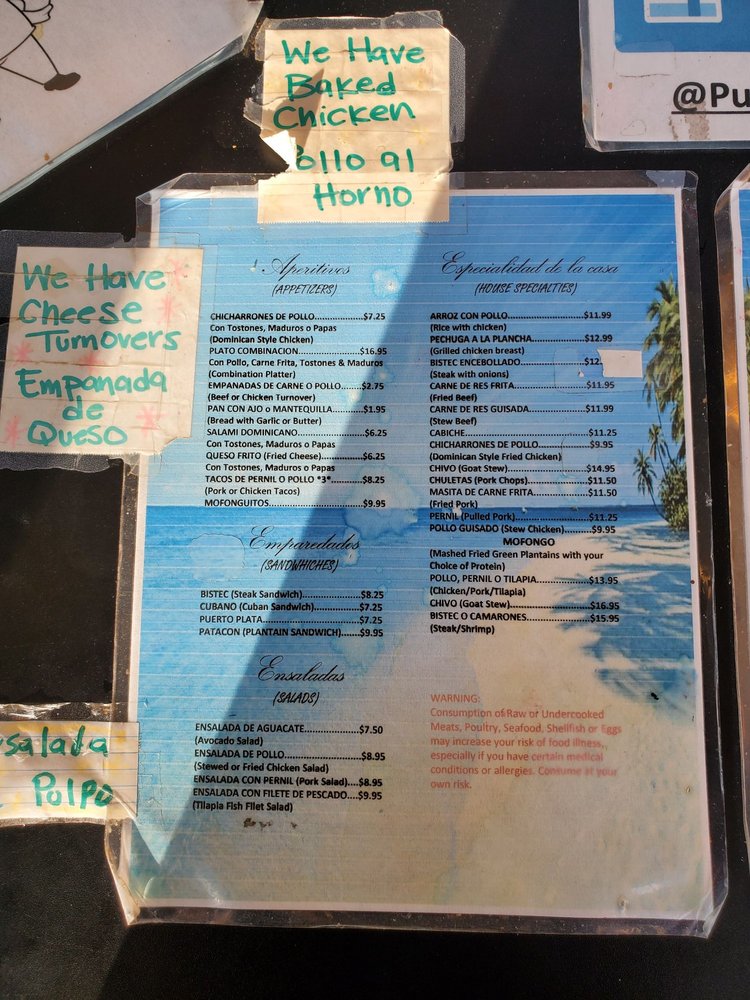 We Have
Baked
Chicken
ollo al
Horno
@Pu
We Have
Cheese
Turnovers
Empanada
de
Queso
salada
Pulpo
Aperitivos
(APPETIZERS)
CHICHARRONES DE POLLO...............$7.25
Con Tostones, Maduros o Papas
(Dominican Style Chicken)
PLATO COMBINACION....................$16.95
Con Pollo, Carne Frita, Tostones & Maduros
(Combination Platter)
EMPANADAS DE CARNE O POLLO.....$2.75
(Beef or Chicken Turnover)
PAN CON AJO o MANTEQUILLA.........$1.95
(Bread with Garlic or Butter)
SALAMI DOMINICANO......................$6.25
Con Tostones, Maduros o Papas
QUESO FRITO (Fried Cheese)............$6.25
Con Tostones, Maduros o Papas
TACOS DE PERNIL O POLLO *3*.........$8.25
(Pork or Chicken Tacos)
MOFONGUITOS.............................$9.95
Emparedados
(SANDWHICHES)
BISTEC (Steak Sandwich)..................$8.25
CUBANO (Cuban Sandwich)..............$7.25
PUERTO PLATA..............................$7.25
PATACON (PLANTAIN SANDWICH)......$9.95
Ensaladas
(SALADS)
ENSALADA DE AGUACATE..................$7.50
(Avocado Salad)
ENSALADA DE POLLO........................$8.95
(Stewed or Fried Chicken Salad)
ENSALADA CON PERNIL (Pork Salad)...$8.95
ENSALADA CON FILETE DE PESCADO....$9.95
(Tilapia Fish Filet Salad)
Especialidad de la casa
(HOUSE SPECIALTIES)
ARROZ CON POLLO.......................$11.99
(Rice with chicken)
PECHUGA A LA PLANCHA...............$12.99
(Grilled chicken breast)
BISTEC ENCEBOLLADO..................$12.
(Steak with onions)
CARNE DE RES FRITA......................$11.95
(Fried Beef)
CARNE DE RES GUISADA................$11.99
(Stew Beef)
CABICHE......................................$11.25
CHICHARRONES DE POLLO..............$9.95
(Dominican Style Fried Chicken)
CHIVO (Goat Stew)........................$14.95
CHULETAS (Pork Chops)..................$11.50
MASITA DE CARNE FRITA................$11.50
(Fried Pork)
PERNIL (Pulled Pork)......................$11.25
POLLO GUISADO (Stew Chicken)......$9.95
MOFONGO
(Mashed Fried Green Plantains with your
Choice of Protein)
POLLO, PERNIL O TILAPIA...............$13.95
(Chicken/Pork/Tilapia)
CHIVO (Goat Stew)........................$16.95
BISTEC O CAMARONES..................$15.95
(Steak/Shrimp)
WARNING:
Consumption of Raw or Undercooked
Meats, Poultry, Seafood, Shellfish or Eggs
may increase your risk of food illness,
especially if you have certain medical
conditions or allergies. Consume at your
own risk.